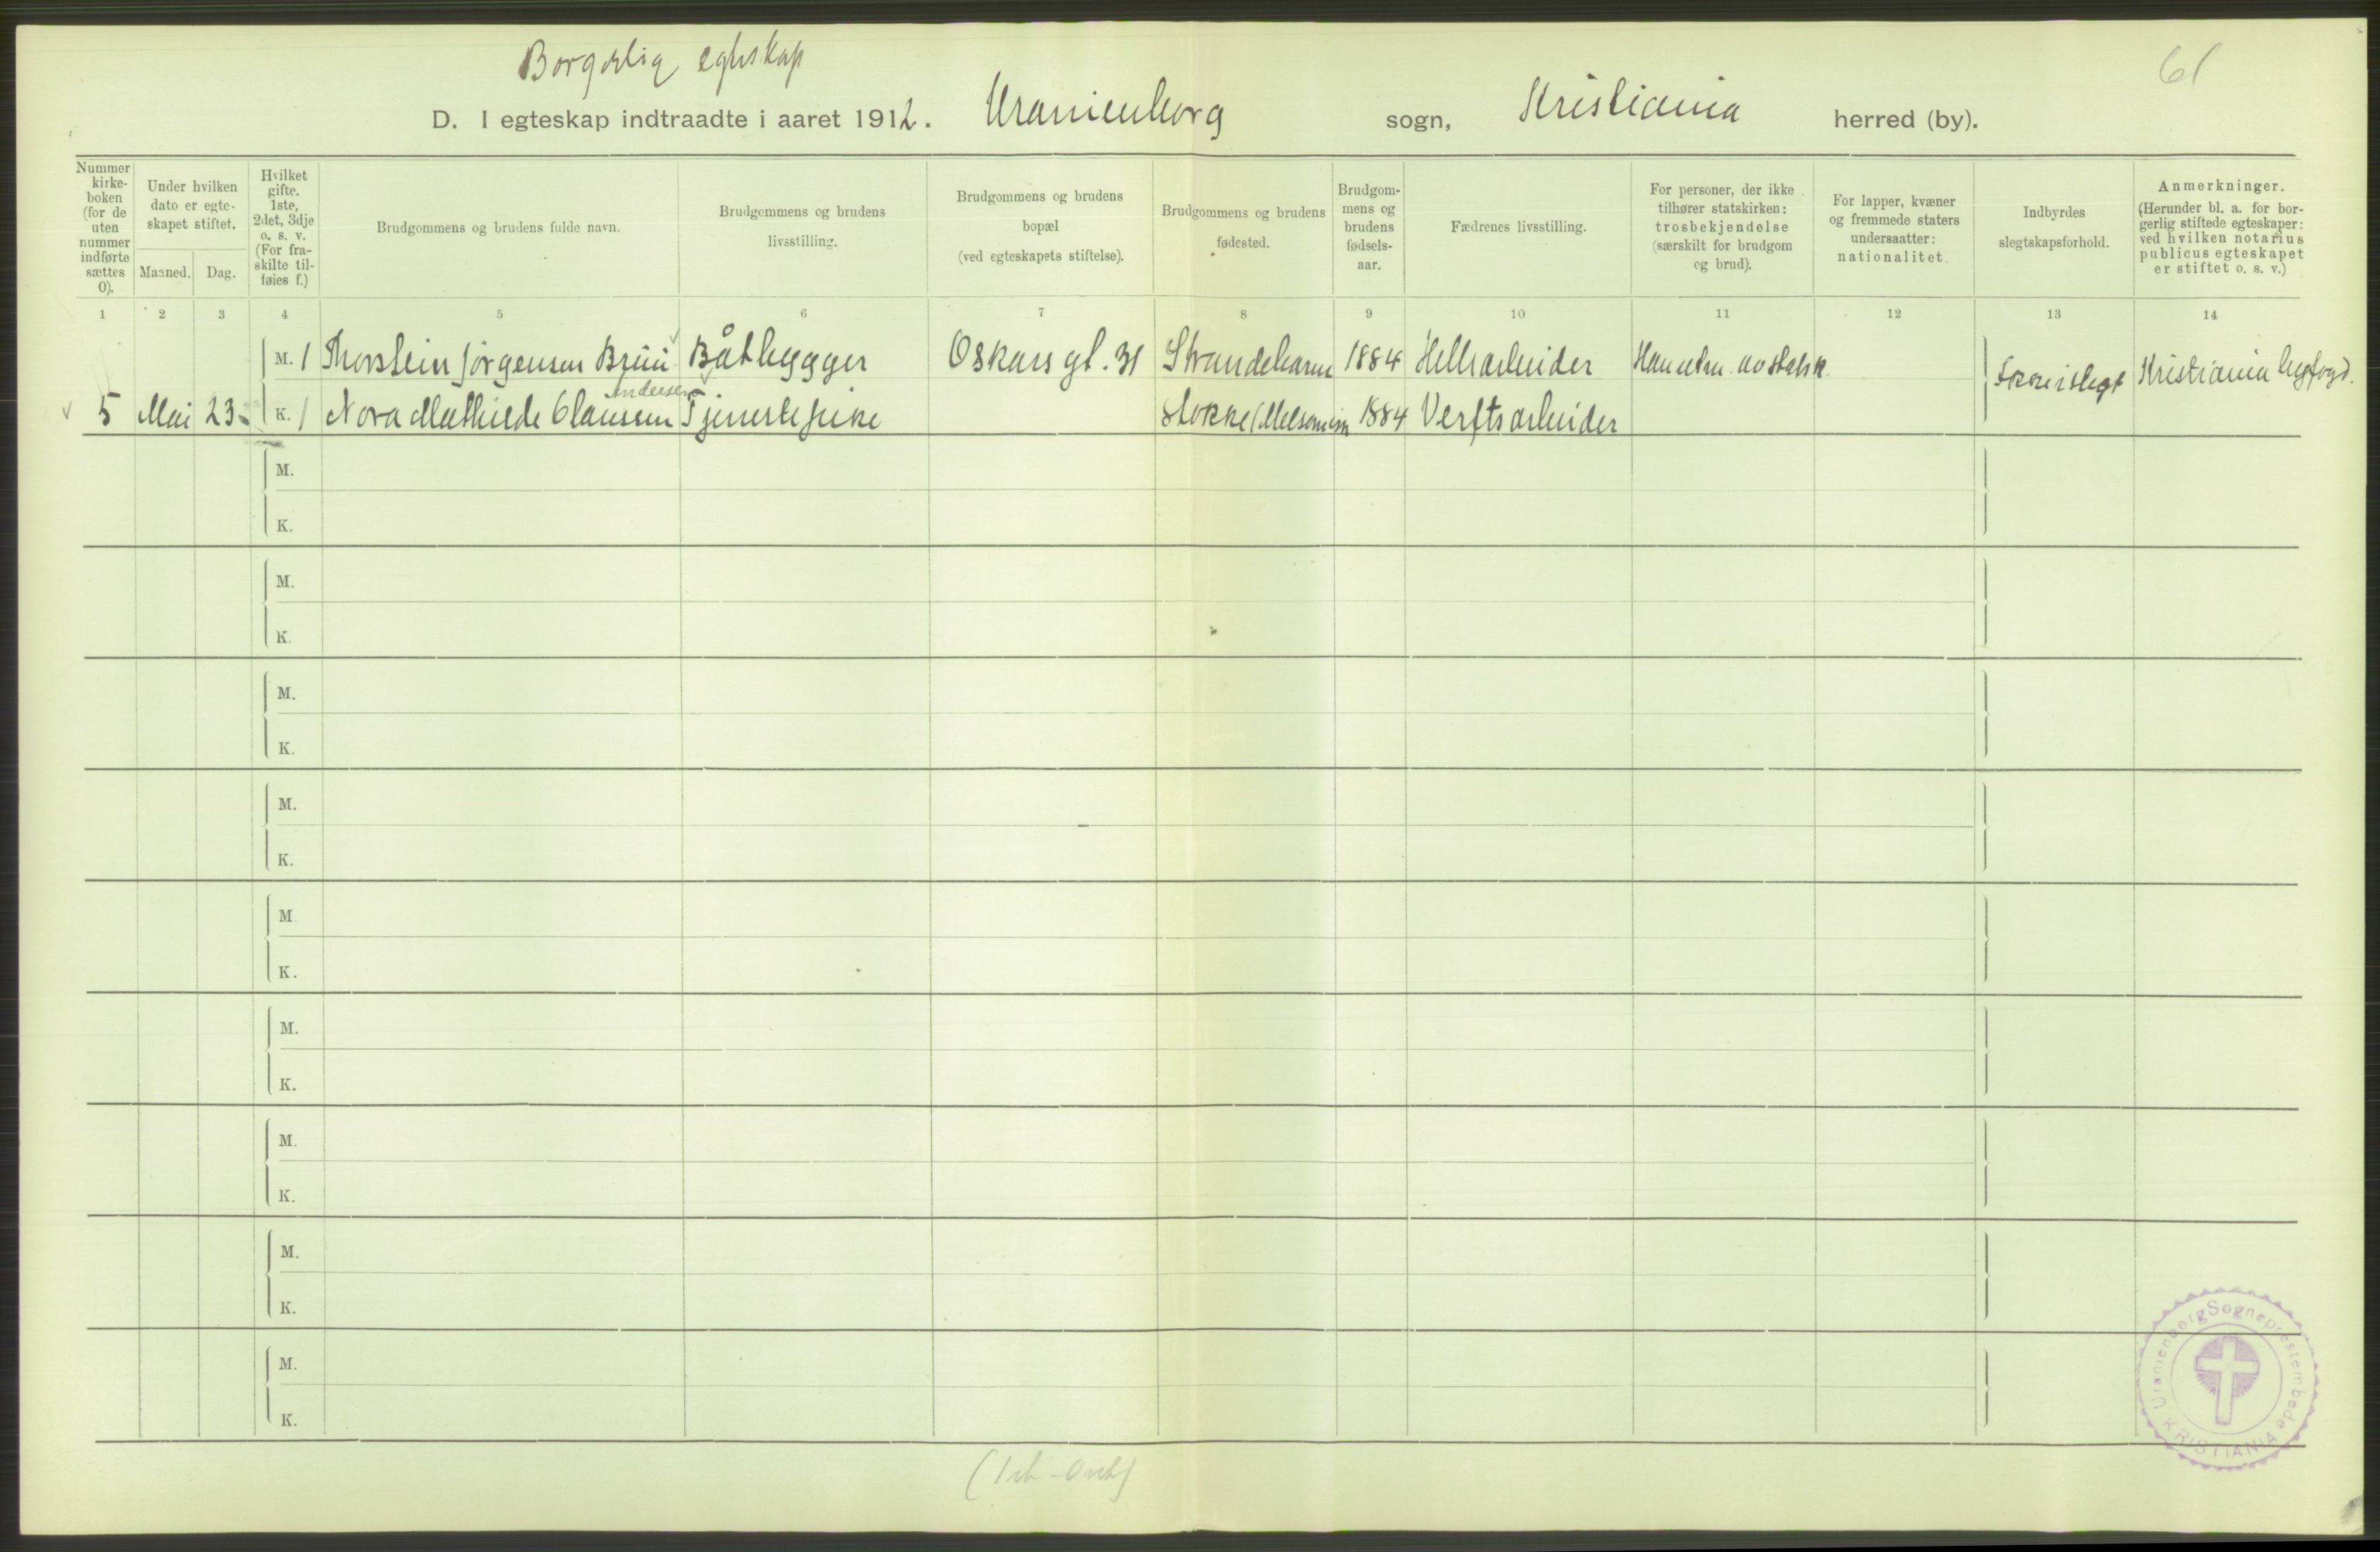 Borgerlig egteskap
61
D. I egteskap indtraadte i aaret 1912. Uranienborg sogn, Kristiania herred (by).
Nummer kirke- boken (for de uten nummer indførte sættes 0).
Under hvilken dato er egte- skapet stiftet.
Maaned. Dag.
Hvilket gifte. 1ste, 2det, 3dje o. s. v. (For fra- skilte til- føies f.)
Brudgommens og brudens fulde navn.
Brudgommens og brudens livsstilling.
Brudgommens og brudens bopæl (ved egteskapets stiftelse).
Brudgommens og brudens fødested.
Brudgom- mens og brudens fødsels- aar.
Fædrenes livsstilling.
For personer, der ikke tilhører statskirken: trosbekjendelse (særskilt for brudgom og brud).
For lapper, kvæner og fremmede staters undersaatter: nationalitet.
Indbyrdes slegtskapsforhold.
Anmerkninger. (Herunder bl. a. for bor- gerlig stiftede egteskaper: ved hvilken notarius publicus egteskapet er stiftet o. s. v.)
1 2 3 4 5 6 7 8 9 10 11 12 13 14
M. 1 Thorstein Jørgensen Bruu Båtbygger Oskars gt. 31 Strandebarm 1884 Kristiania byfogd.
Andersen
5 Mai 23 K. 1 Nora Mathilde Clausen Tjenestepike Stokke 1884 Verftsarbeider
M.
K.
M.
K.
M.
K.
M.
K.
M.
K.
M.
K.
M.
K.
M.
K.
M.
K.
Uranienborg Sogneprestembede
KRISTIANIA